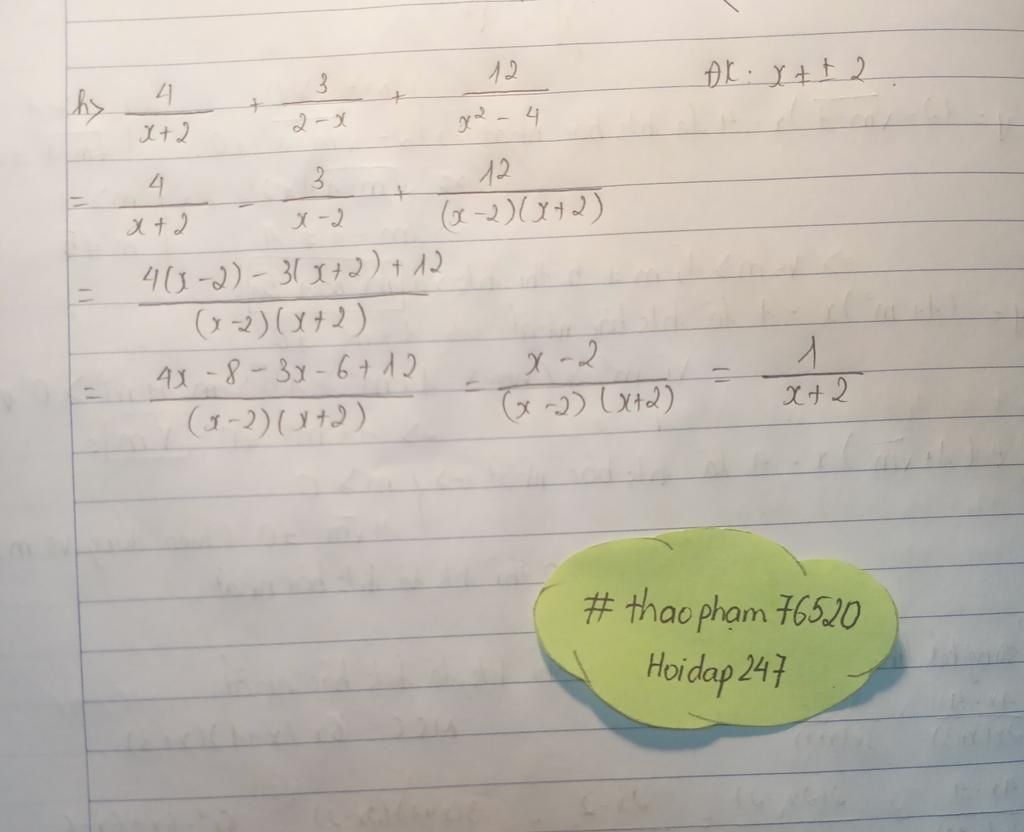 h> 4/(x+2) + 3/(2-x) + 12/(x² - 4) ĐK: x ≠ ± 2.
= 4/(x+2) - 3/(x-2) + 12/((x-2)(x+2))
= (4(x-2) - 3(x+2) + 12)/((x-2)(x+2))
= (4x - 8 - 3x - 6 + 12)/((x-2)(x+2)) = (x-2)/((x-2)(x+2)) = 1/(x+2)
# thaophạm 76520
Hoidap247